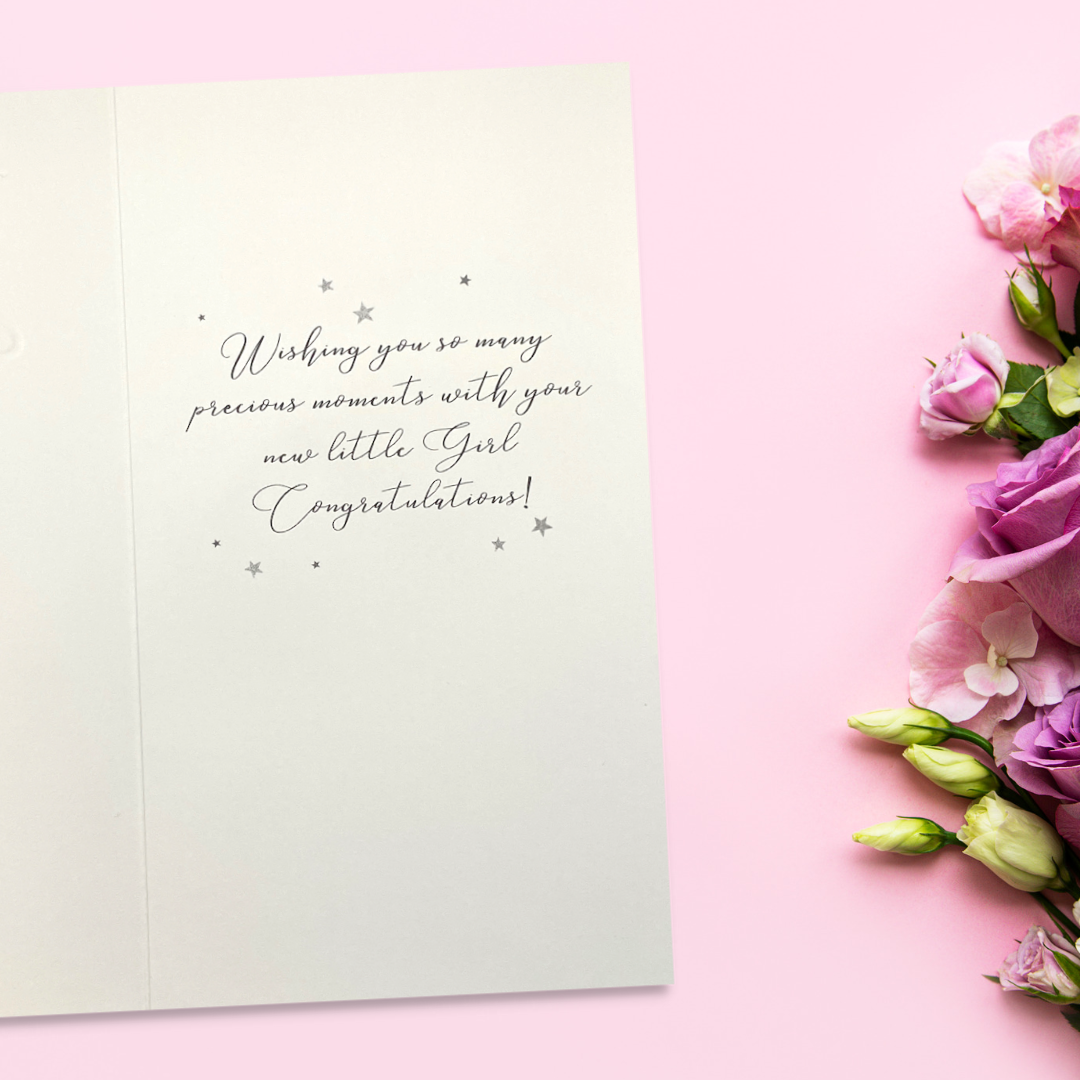 Wishing you so many
precious moments with your
new little Girl
Congratulations!